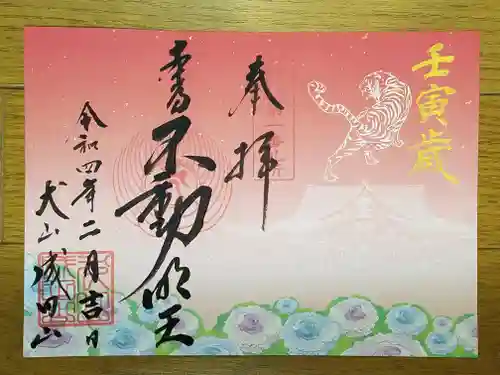 壬寅歳
奉拝
本尊不動明王
令和四年二月吉日
犬山成田山